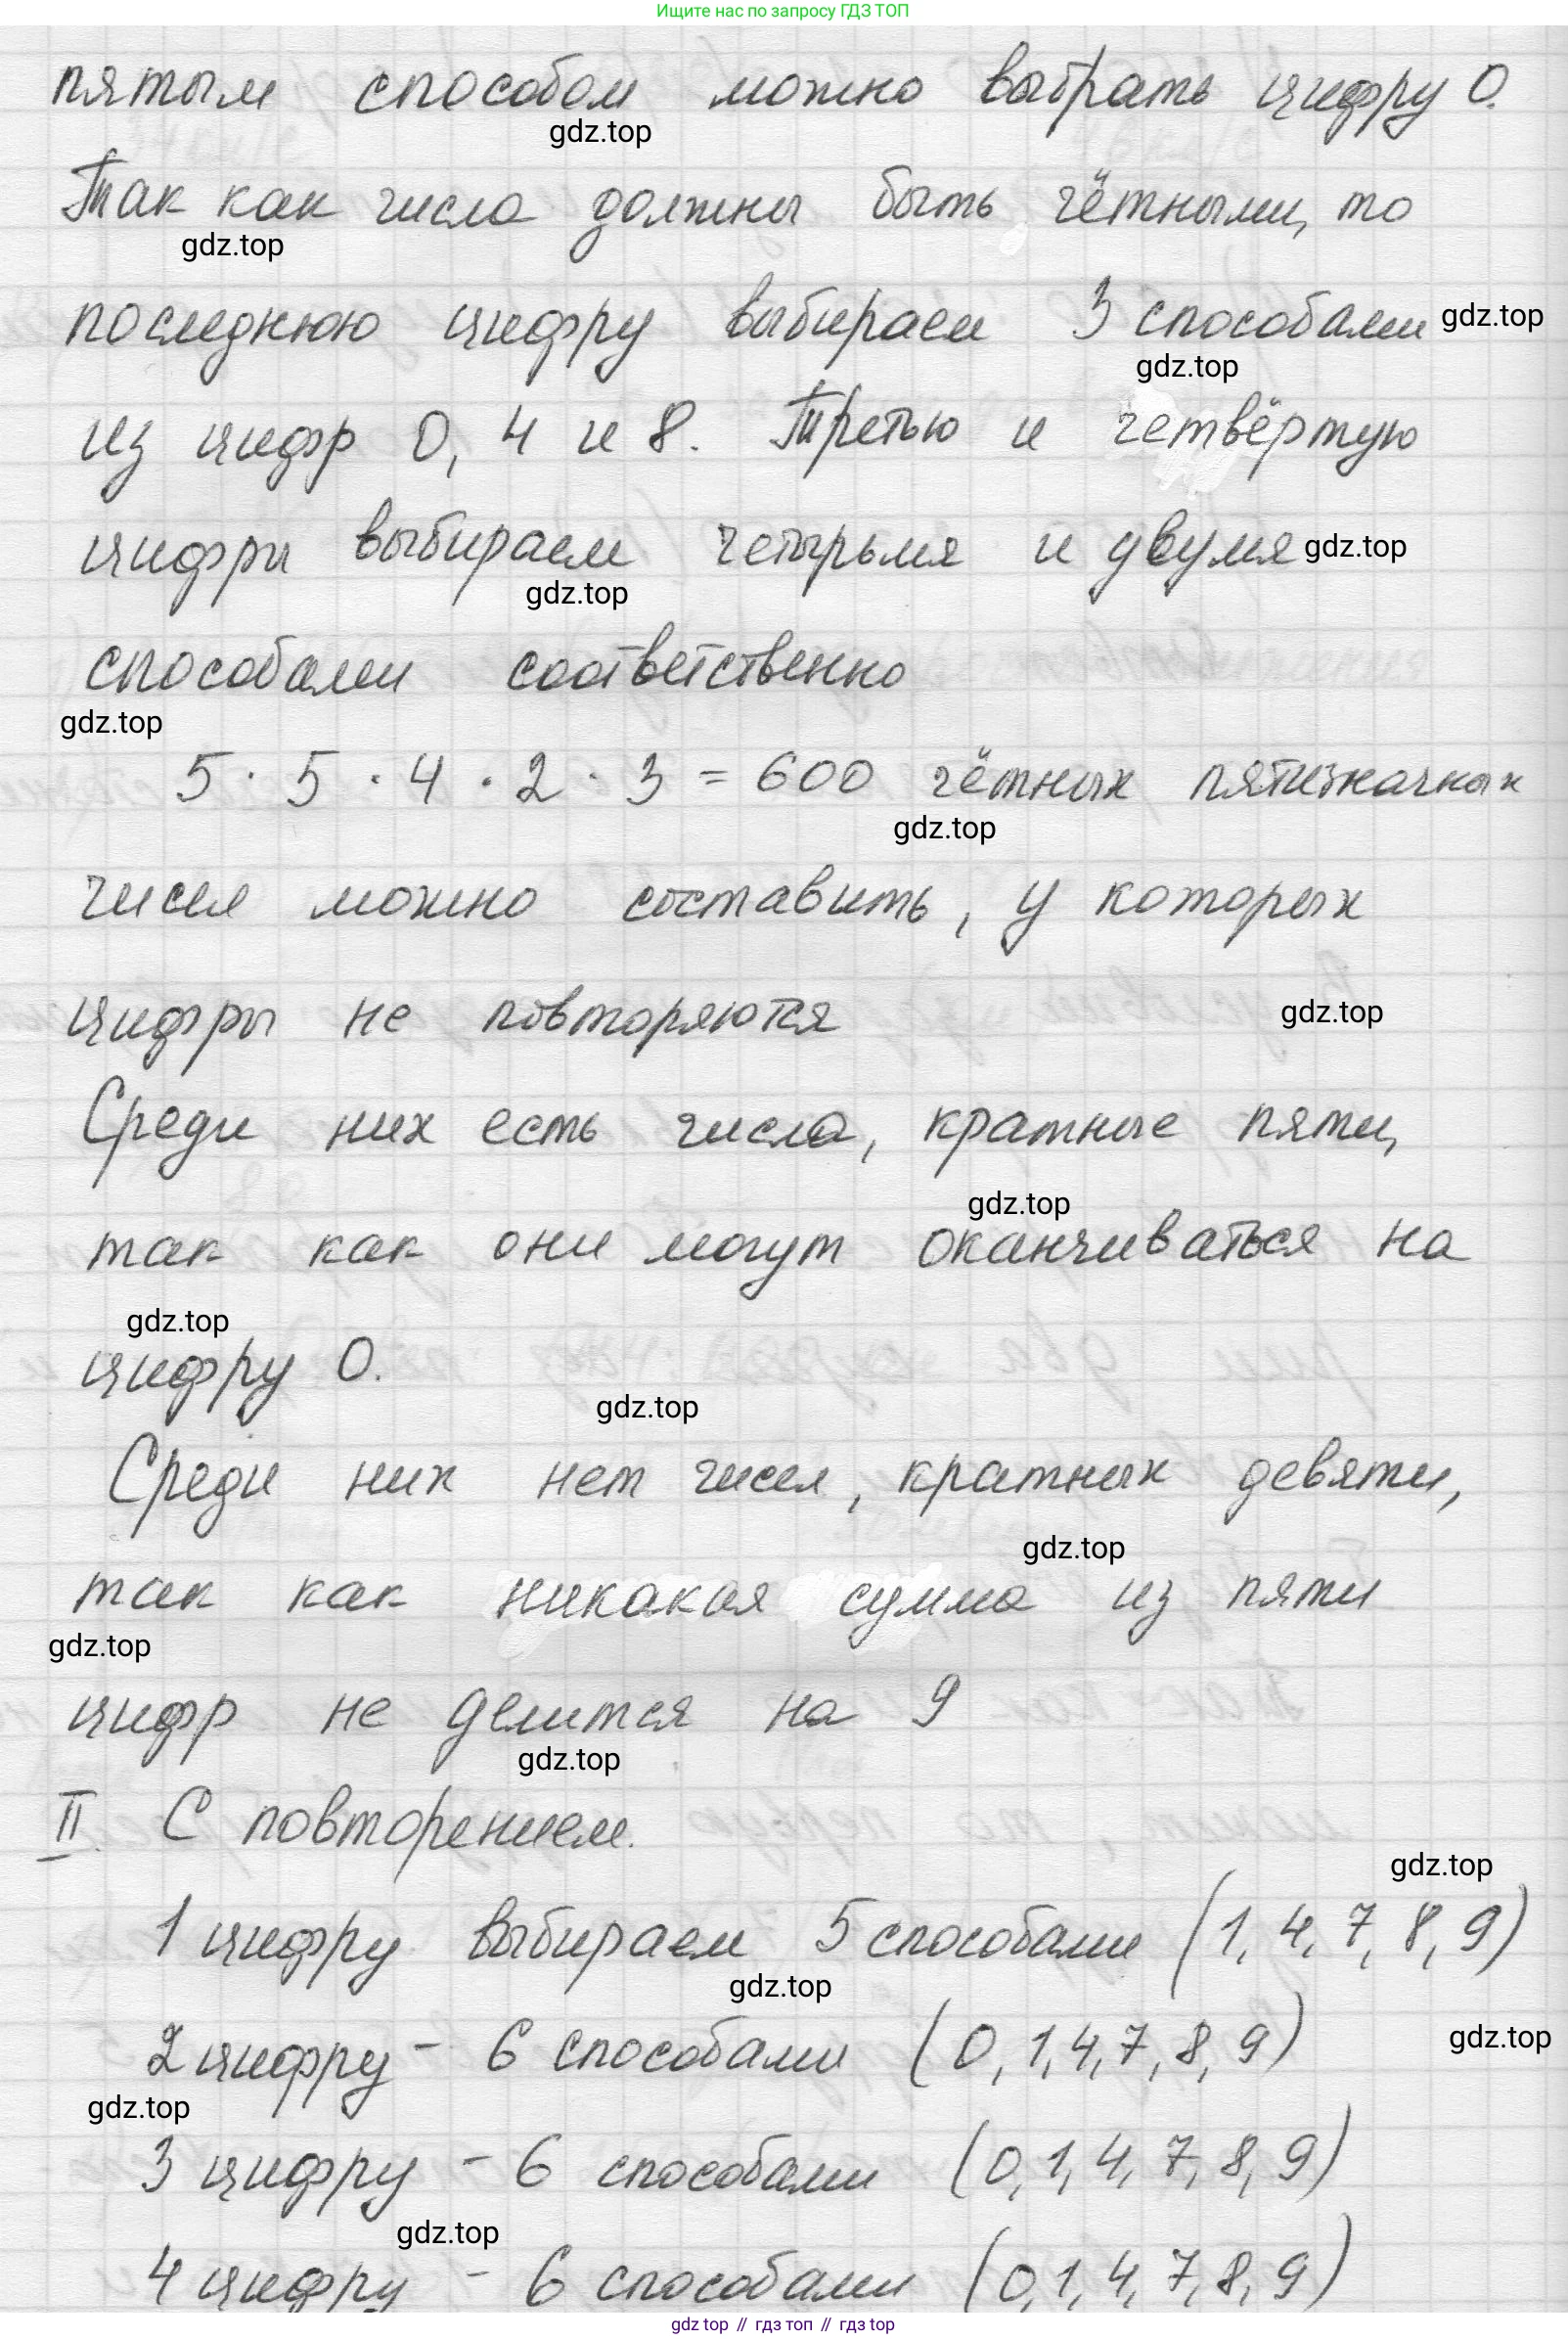 Ищите нас по запросу ГДЗ ТОП
пятым способом можно выбрать цифру 0.
gdz.top
Так как числа должны быть чётными, то
gdz.top
последнюю цифру выбираем 3 способами gdz.top
gdz.top
из цифр 0, 4 и 8. Третью и четвёртую
цифры выбираем четырьмя и двумя gdz.top
gdz.top
способами соответственно
gdz.top
5 · 5 · 4 · 2 · 3 = 600 чётных пятизначных
gdz.top
чисел можно составить, у которых
цифры не повторяются gdz.top
Среди них есть числа, кратные пяти,
gdz.top
так как они могут оканчиваться на
gdz.top
цифру 0.
gdz.top
Среди них нет чисел, кратных девяти,
gdz.top
так как никакая сумма из пяти
gdz.top
цифр не делится на 9
gdz.top
II. С повторением.
gdz.top
1 цифру выбираем 5 способами (1, 4, 7, 8, 9)
gdz.top
2 цифру - 6 способами (0, 1, 4, 7, 8, 9) gdz.top
gdz.top
3 цифру - 6 способами (0, 1, 4, 7, 8, 9)
gdz.top
4 цифру - 6 способами (0, 1, 4, 7, 8, 9)
gdz top // гдз топ // гдз top